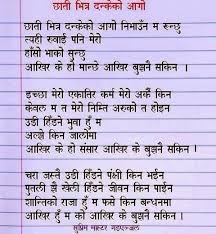 छाती भित्र दन्केको आगो
छाती भित्र दन्केको आगो निभाउँन म रुन्छु
त्यही रुवाई पनि मेरो
हाँसो भाको सुन्छु
आखिर के हो मान्छे आखिर बुझ्नै सकिन ।
इच्छा मेरो एकातिर कर्म मेरो अर्कै किन
केवल म त मेरो निम्ति अरुको त होइन
उडी हिँडने भुवा हुँ म
अल्झे किन जालोमा
आखिर के हो संसार आखिर बुझ्नै सकिन ।
चरा जस्तै उडी हिँडने पंक्षी किन भईन
पुतली झै खेली हिँडने जीवन किन पाईन
शान्तिको राजा हुँ म फसे किन बन्धनमा
आखिर हुँ म को आखिर के बुझ्नै सकिन ।
सुप्रिम मास्टर गडएन्जल